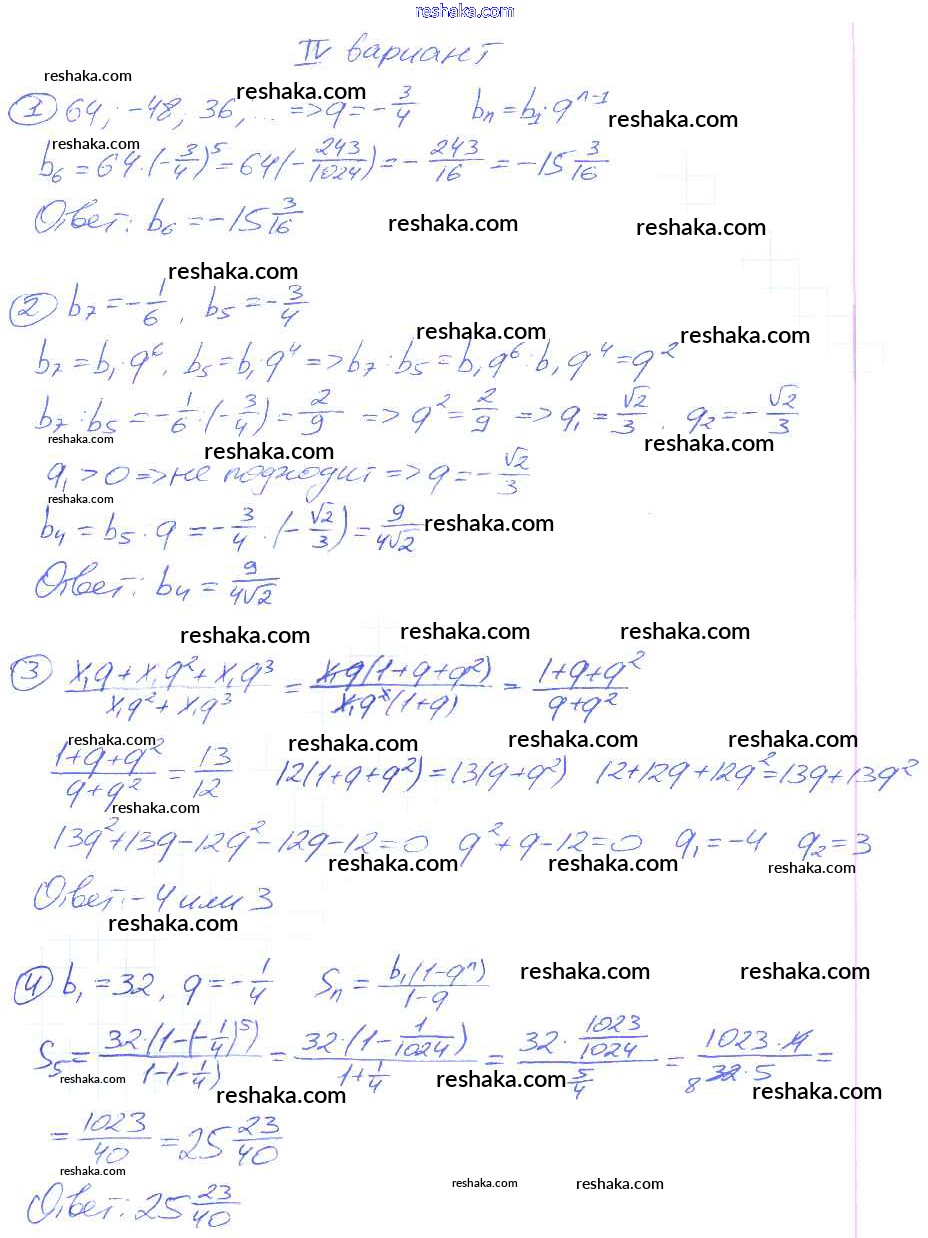 reshaka.com
IV вариант
reshaka.com
reshaka.com
① 64; -48; 36; ... => q = -3/4   bₙ = b₁·qⁿ⁻¹
reshaka.com
reshaka.com
b₆ = 64·(-3/4)⁵ = 64(-243/1024) = -243/16 = -15 3/16
Ответ: b₆ = -15 3/16
reshaka.com
reshaka.com
reshaka.com
② b₇ = -1/6, b₅ = -3/4
reshaka.com
reshaka.com
b₇ = b₁·q⁶, b₅ = b₁·q⁴ => b₇ : b₅ = b₁q⁶ : b₁q⁴ = q²
b₇ : b₅ = -1/6 : (-3/4) = 2/9 => q² = 2/9 => q₁ = √2/3, q₂ = -√2/3
reshaka.com
reshaka.com
reshaka.com
q₁ > 0 => не подходит => q = -√2/3
reshaka.com
b₄ = b₅ · q = -3/4 : (-√2/3) = 9/4√2
reshaka.com
Ответ: b₄ = 9/4√2
reshaka.com
reshaka.com
reshaka.com
③ x₁q + x₁q² + x₁q³/x₁q² + x₁q³ = x₁q(1+q+q²)/x₁q²(1+q) = 1+q+q²/q+q²
reshaka.com
reshaka.com
reshaka.com
reshaka.com
1+q+q²/q+q² = 13/12   12(1+q+q²) = 13(q+q²)   12+12q+12q² = 13q+13q²
reshaka.com
13q²+13q-12q²-12q-12=0   q²+q-12=0   q₁=-4   q₂=3
reshaka.com
reshaka.com
reshaka.com
Ответ: -4 или 3
reshaka.com
④ b₁ = 32, q = -1/4   Sₙ = b₁(1-qⁿ)/1-q
reshaka.com
reshaka.com
S₅ = 32·(1-(-1/4)⁵)/1-(-1/4) = 32·(1-1/1024)/1+1/4 = 32·1023/1024/5/4 = 1023·4/8 32·5 =
reshaka.com
reshaka.com
reshaka.com
reshaka.com
= 1023/40 = 25 23/40
reshaka.com
reshaka.com
reshaka.com
Ответ: 25 23/40